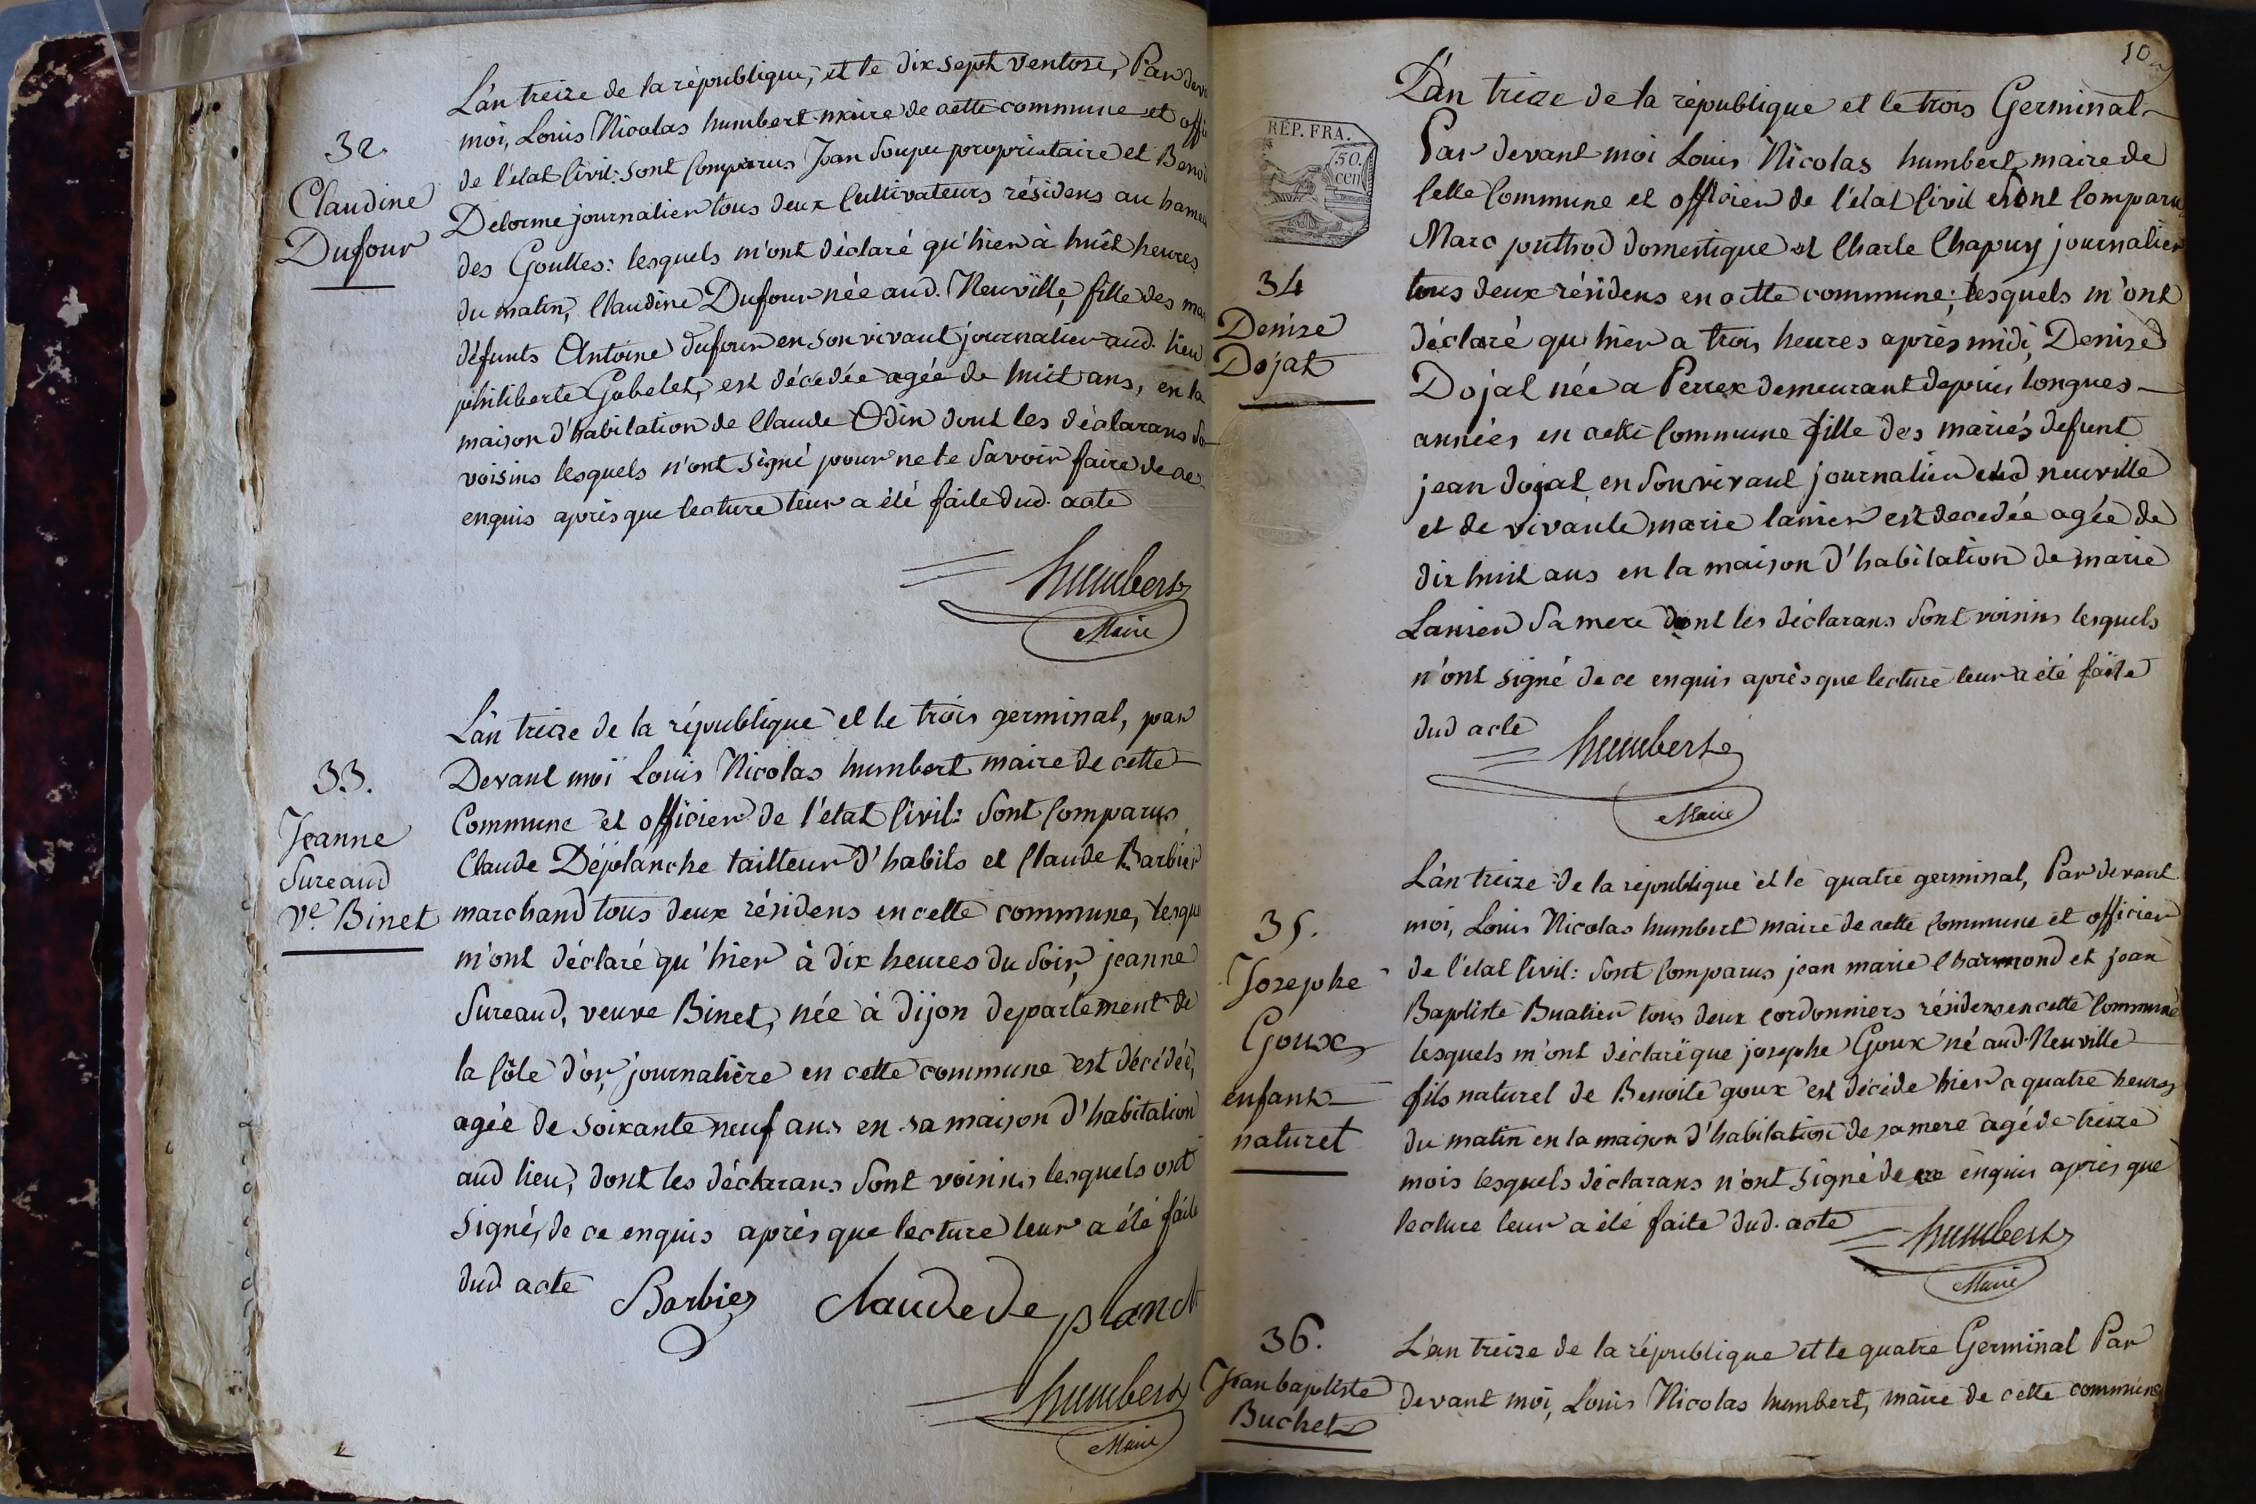 32.
Claudine
Dufour
L'an treize de la république, et le dix sept ventose, Par dev
moi, Louis Nicolas humbert maire de cette commune et offi
de l'état Civil: sont Comparus Jean Soupe propriétaire et Benoit
Delorme journalier tous deux Cultivateurs résidens au hame
des Gouttes: lesquels m'ont déclaré qu'hier à huit heures
du matin, Claudine Dufour née aud. Neuville, fille des ma
défunts Antoine dufour en son vivant journalier aud. lieu
philiberte Gobelet, est décédée agée de huit ans, en la
maison d'habitation de Claude Odin dont les déclarans so
voisins lesquels n'ont signé pour ne le savoir faire de ce
enquis après que lecture leur a été faite dud. acte
humbert
Maire
33.
Jeanne
Sureaud
Ve. Binet
L'an treize de la république et le trois germinal, par
Devant moi Louis Nicolas humbert maire de cette
Commune et officier de l'état Civil: sont Comparus
Claude Déplanche tailleur d'habits et Claude Barbier
marchand tous deux résidens en cette commune, lesqu
m'ont déclaré qu'hier à dix heures du soir, jeanne
Sureaud, veuve Binet, née à dijon département de
la Côte d'or, journalière en cette commune est décédée,
agée de soixante neuf ans en sa maison d'habitation
aud lieu, dont les déclarans sont voisins lesquels ont
signé, de ce enquis après que lecture leur a été faite
dud acte
Barbier Claude De planch
humbert
Maire
10
RÉP. FRA.
50.
cen
34
Denize
Dojat
L'an treize de la république et le trois Germinal
Par devant moi Louis Nicolas humbert maire de
Cette Commune et officier de l'état Civil sont Comparu
Marc pouthod domestique et Charle Chapuy journalier
tous deux résidens en cette commune; lesquels m'ont
déclaré qu'hier a trois heures après midi, Denize
Dojat née a Perrex demeurant depuis longues
années en cette Commune fille des mariés defunt
jean dojat en son vivant journalier aud neuville
et de vivante marie lanier est decedée agée de
dix huit ans en la maison d'habitation de marie
Lanier sa mere dont les déclarans sont voisins lesquels
n'ont signé de ce enquis après que lecture leur a été faite
dud acte
humbert
Maire
35.
Josephe
Goux
enfant
naturel
L'an treize de la république et le quatre germinal, Par devant
moi, Louis Nicolas humbert maire de cette Commune et officier
de l'état Civil: sont Comparus jean marie Charmond et jean
Baptiste Buatier tous deux cordonniers résidens en cette Commune
lesquels m'ont déclaré que josephe Goux né aud. Neuville
fils naturel de Benoite goux est décide hier a quatre heures
du matin en la maison d'habitation de sa mere agé de treize
mois lesquels déclarans n'ont signé de ce enquis après que
lecture leur a été faite dud. acte
humbert
Maire
36.
Jean baptiste
Buchet
L'an treize de la république et le quatre Germinal Par
devant moi, Louis Nicolas humbert, maire de cette commune